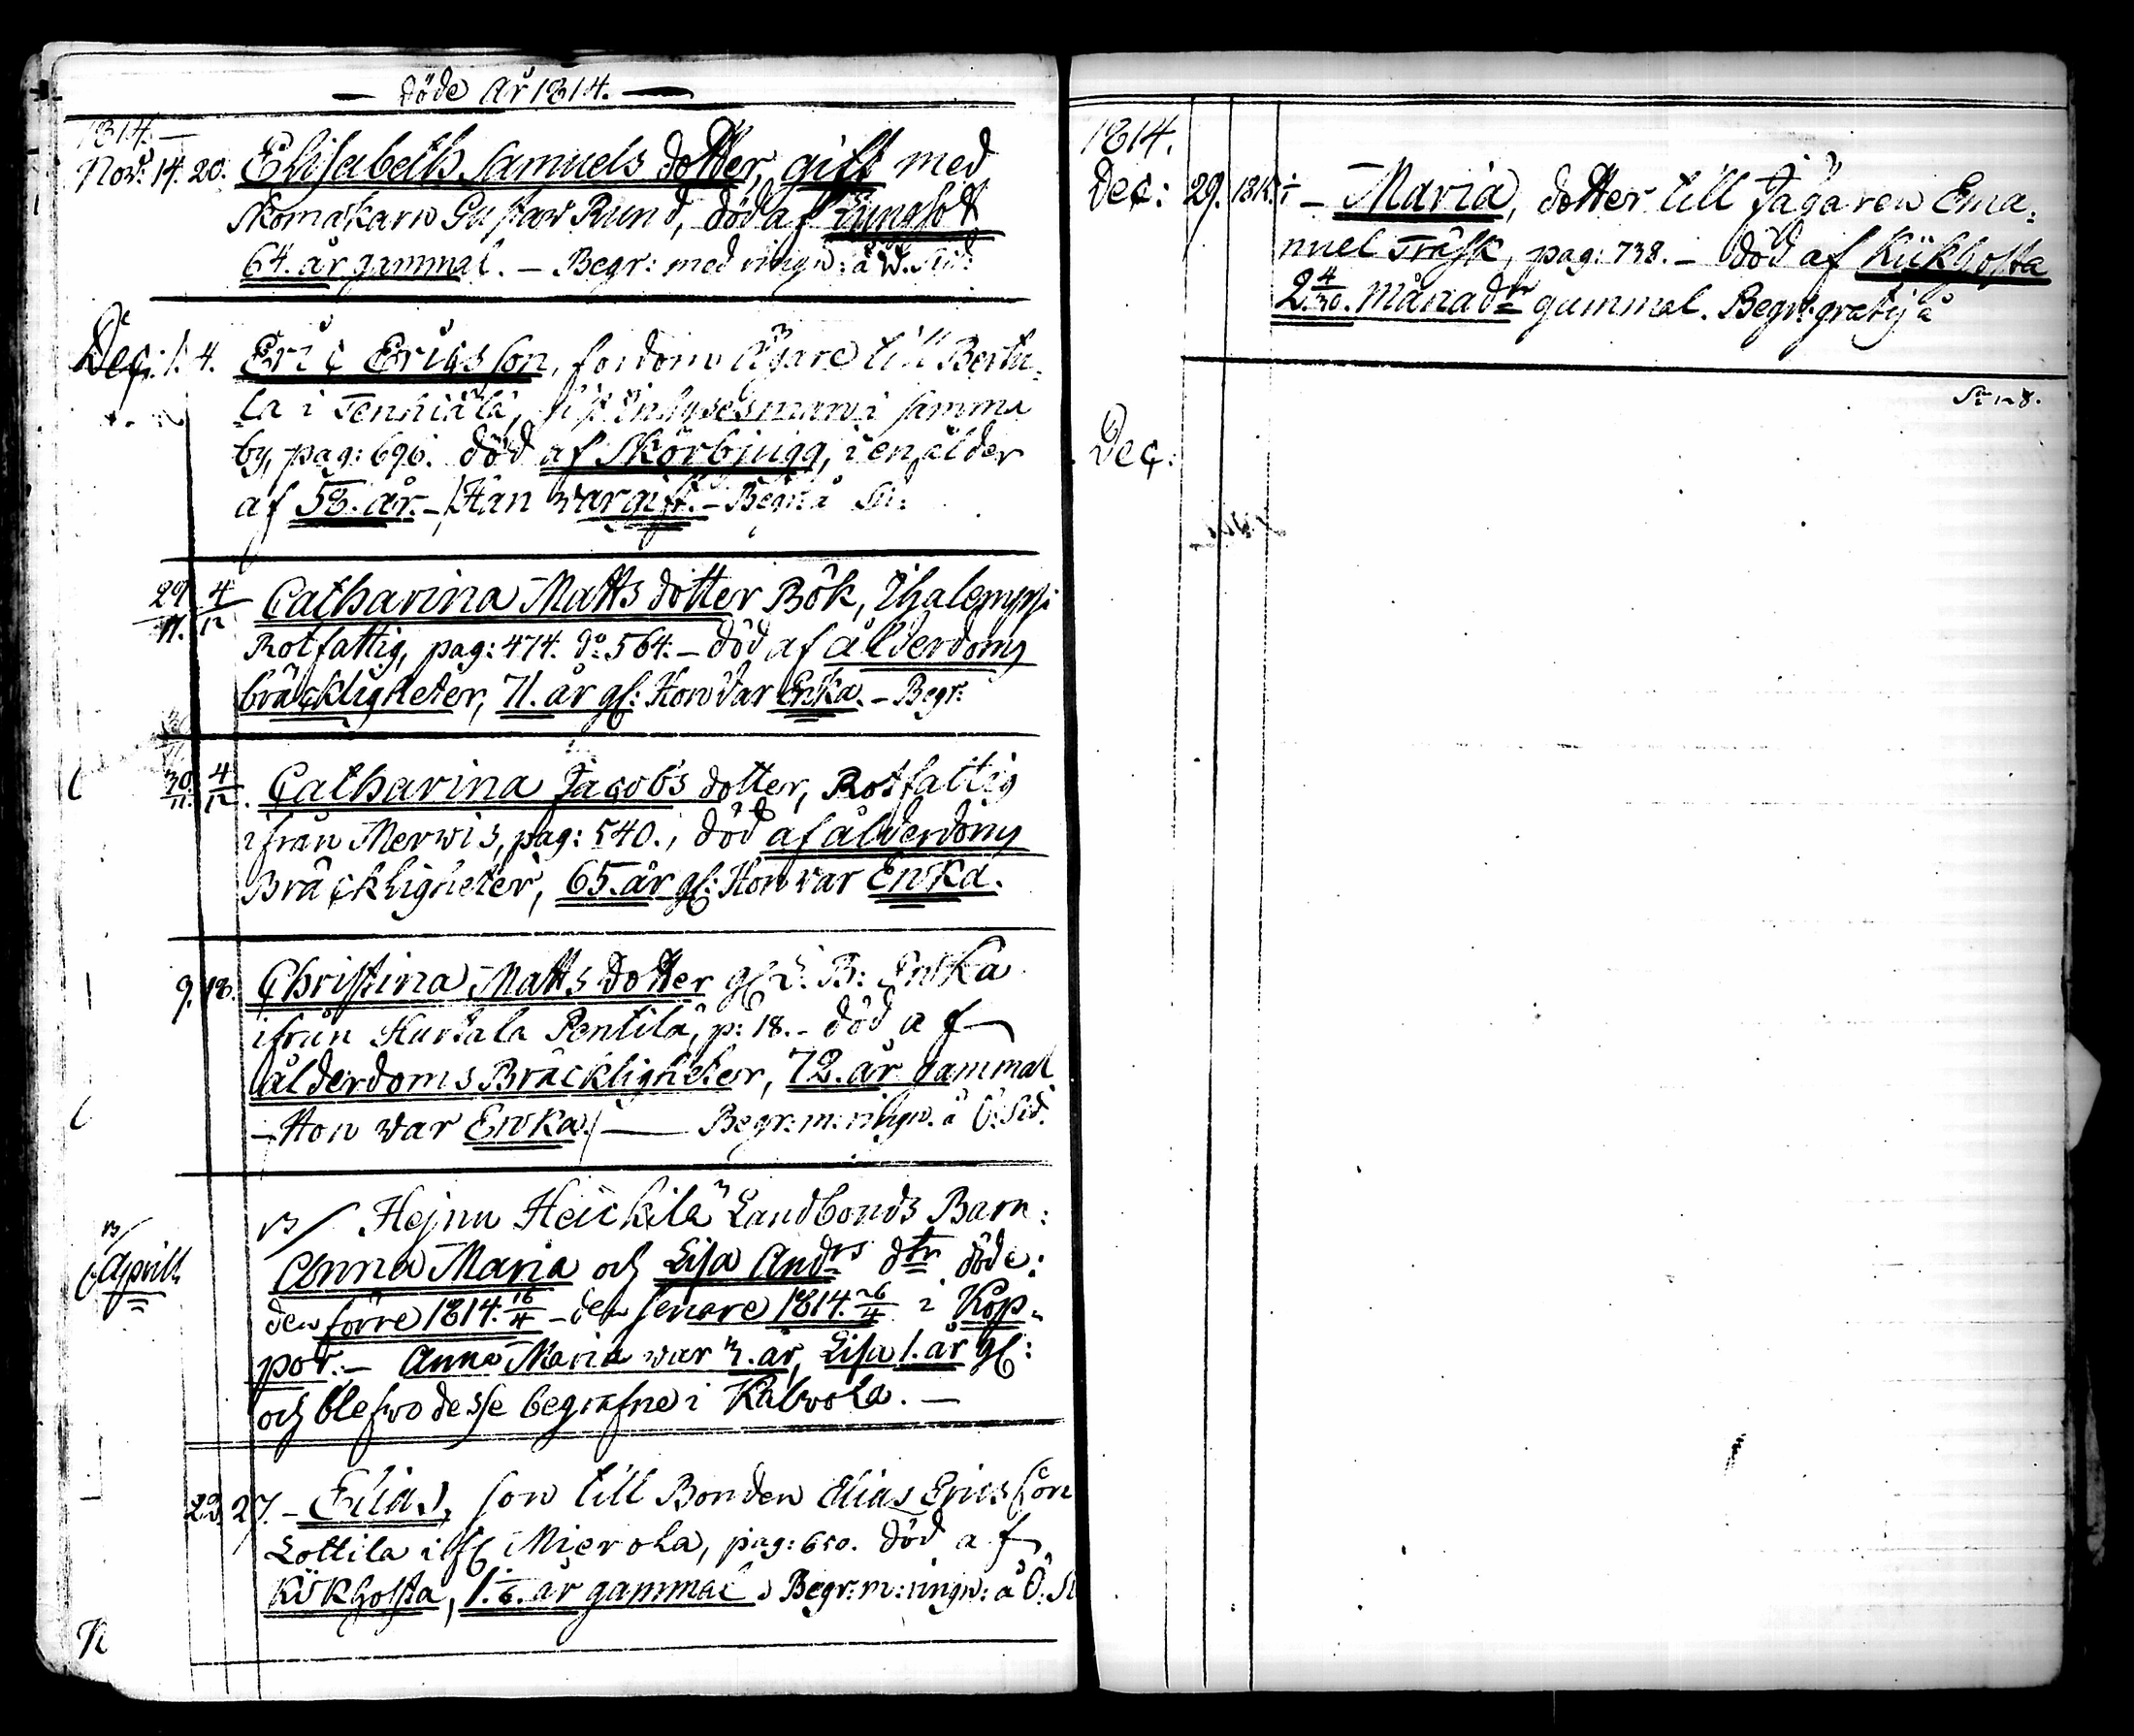 Döde År 1814.
1814.
Nov: 14. 20. Elisabeth Samuels dotter, gift med
Skomakarn Gustav Rund, död af Lungsot
64. år gammal. – Begr: med ringn: å W. Sid:
Dec: 1. 4. Eric Ericsson, fordom Ägare till Bertu-
la i Tenhiälä, Inhysesman i samma
by, pag: 696. död af Skörbjugg, i en ålder
af 53. år. – Han war gift. – Begr: å
29/11. 4/12 Catharina Matts dotter Bök, Ihalempi
Rotfattig, pag: 474. do 564. – död af ålderdoms
bräckligheter, 71. år gl: Hon var Enka. – Begr:
30/11. 4/12. Catharina Jacobs dotter, Rotfattig
ifrån Merwis, pag: 540., död af ålderdoms
Bräckligheter, 65. år gl: Hon war Enka.
9. 18. Christina Matts dotter gl. B: Enka
ifrån Hurtala Pentilä, p: 18. – död af
ålderdoms Bräckligheter, 72. år gammal
– Hon war Enka. – Begr: m: ringn. å Ö: Sid.
Hejnu Heickilä Landbonds Barn:
Aprill Anna Maria och Lisa Andrs dtr döde:
den förre 1814. 16/4 – den senare 1814. 26/4 i Kop-
por. – Anna Maria war 3. år, Lisa 1. år gl:
och blefwo desse begrafne i Kalvola. –
23. 27. – Elias, son till Bonden Elias Ericsson
Lottila ifl Mierola, pag: 650. död af
Kikhosta, 1. år gammal Begr: m: ringn: å Ö:
1814.
Dec: 29. – Maria, dotter till Jägaren Ema-
nuel Träsk, pag: 738. – död af Kikhosta
2 4/30. månadr gammal. Begr: gratis å
Dec: